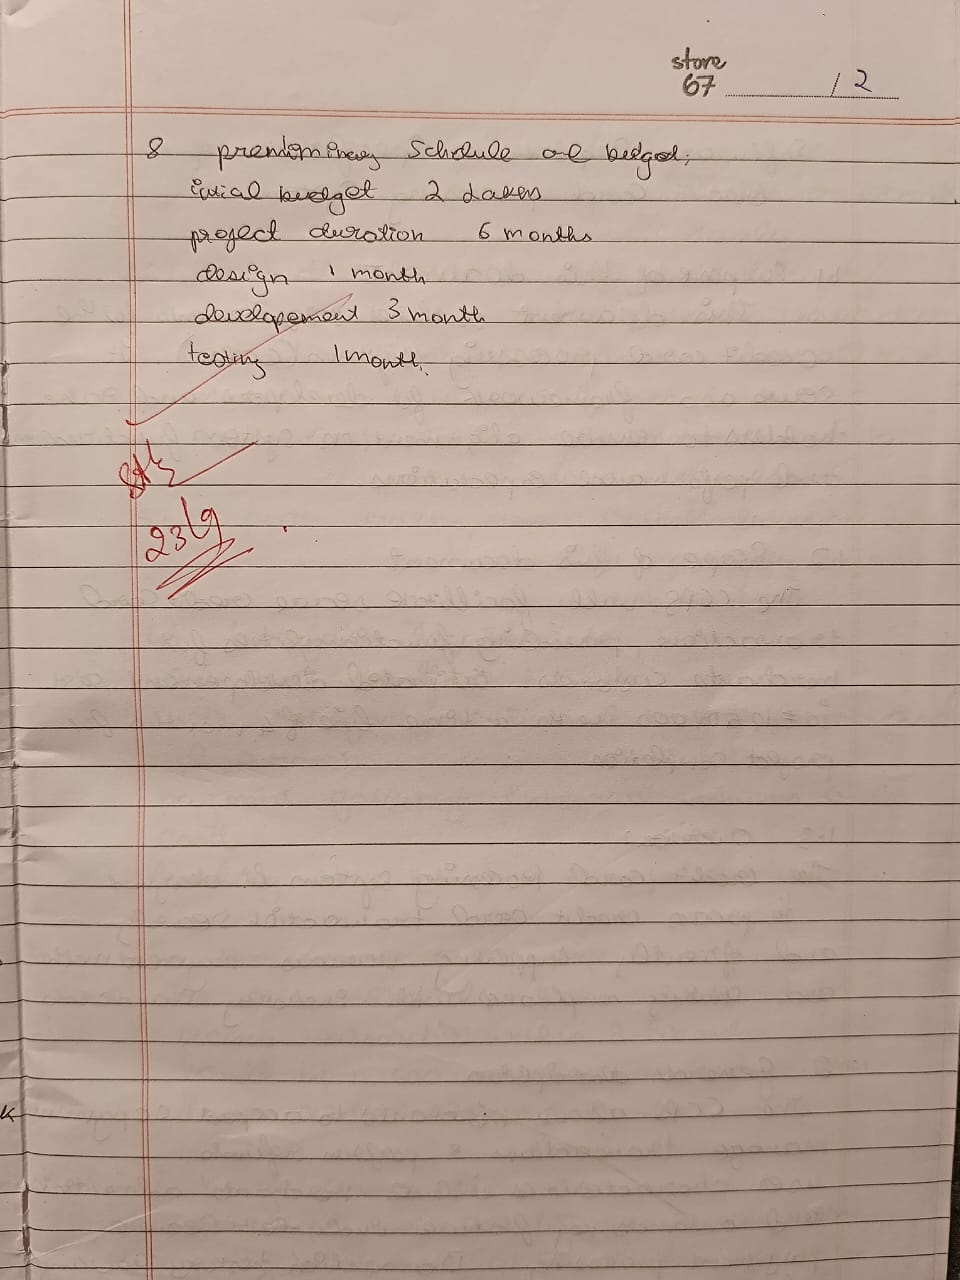 store
67 / 2
8 premliminery Schdule ad bedged;
intial budget 2 Lakhs
project duration 6 months
design 1 month
developement 3 month
testing 1 month.
23/9